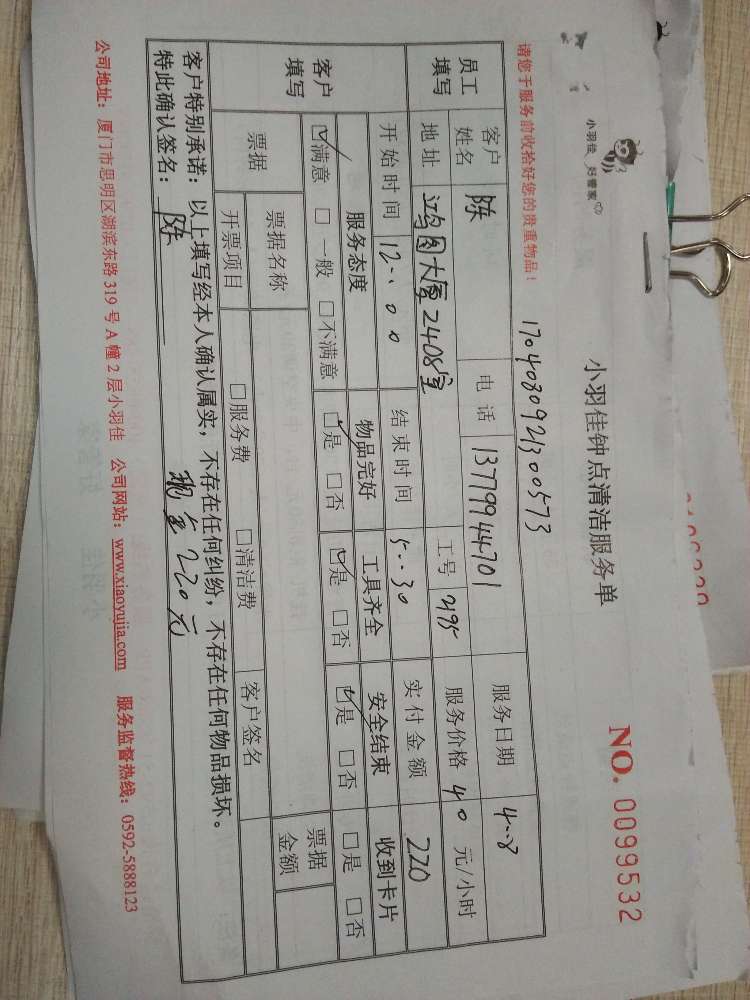 小羽佳 好管家
小羽佳钟点清洁服务单
NO. 0099532
请您于服务前收拾好您的贵重物品！
1704080921300573
员工填写
客户姓名 陈 电话 13779944701 服务日期 4..8
地址 鸿图大厦2408室 工号 2195 服务价格 40 元/小时
开始时间 12..00 结束时间 5..30 实付金额 220
客户填写
服务态度 物品完好 工具齐全 安全结束 收到卡片
☑满意 □一般 □不满意 ☑是 □否 ☑是 □否 ☑是 □否 □是 □否
票据 票据名称 票据金额
开票项目 □服务费 □清洁费 客户签名
客户特别承诺：以上填写经本人确认属实，不存在任何纠纷，不存在任何物品损坏。
特此确认签名：陈 现金220元
公司地址：厦门市思明区湖滨东路319号A幢2层小羽佳 公司网站：www.xiaoyujia.com 服务监督热线：0592-5888123